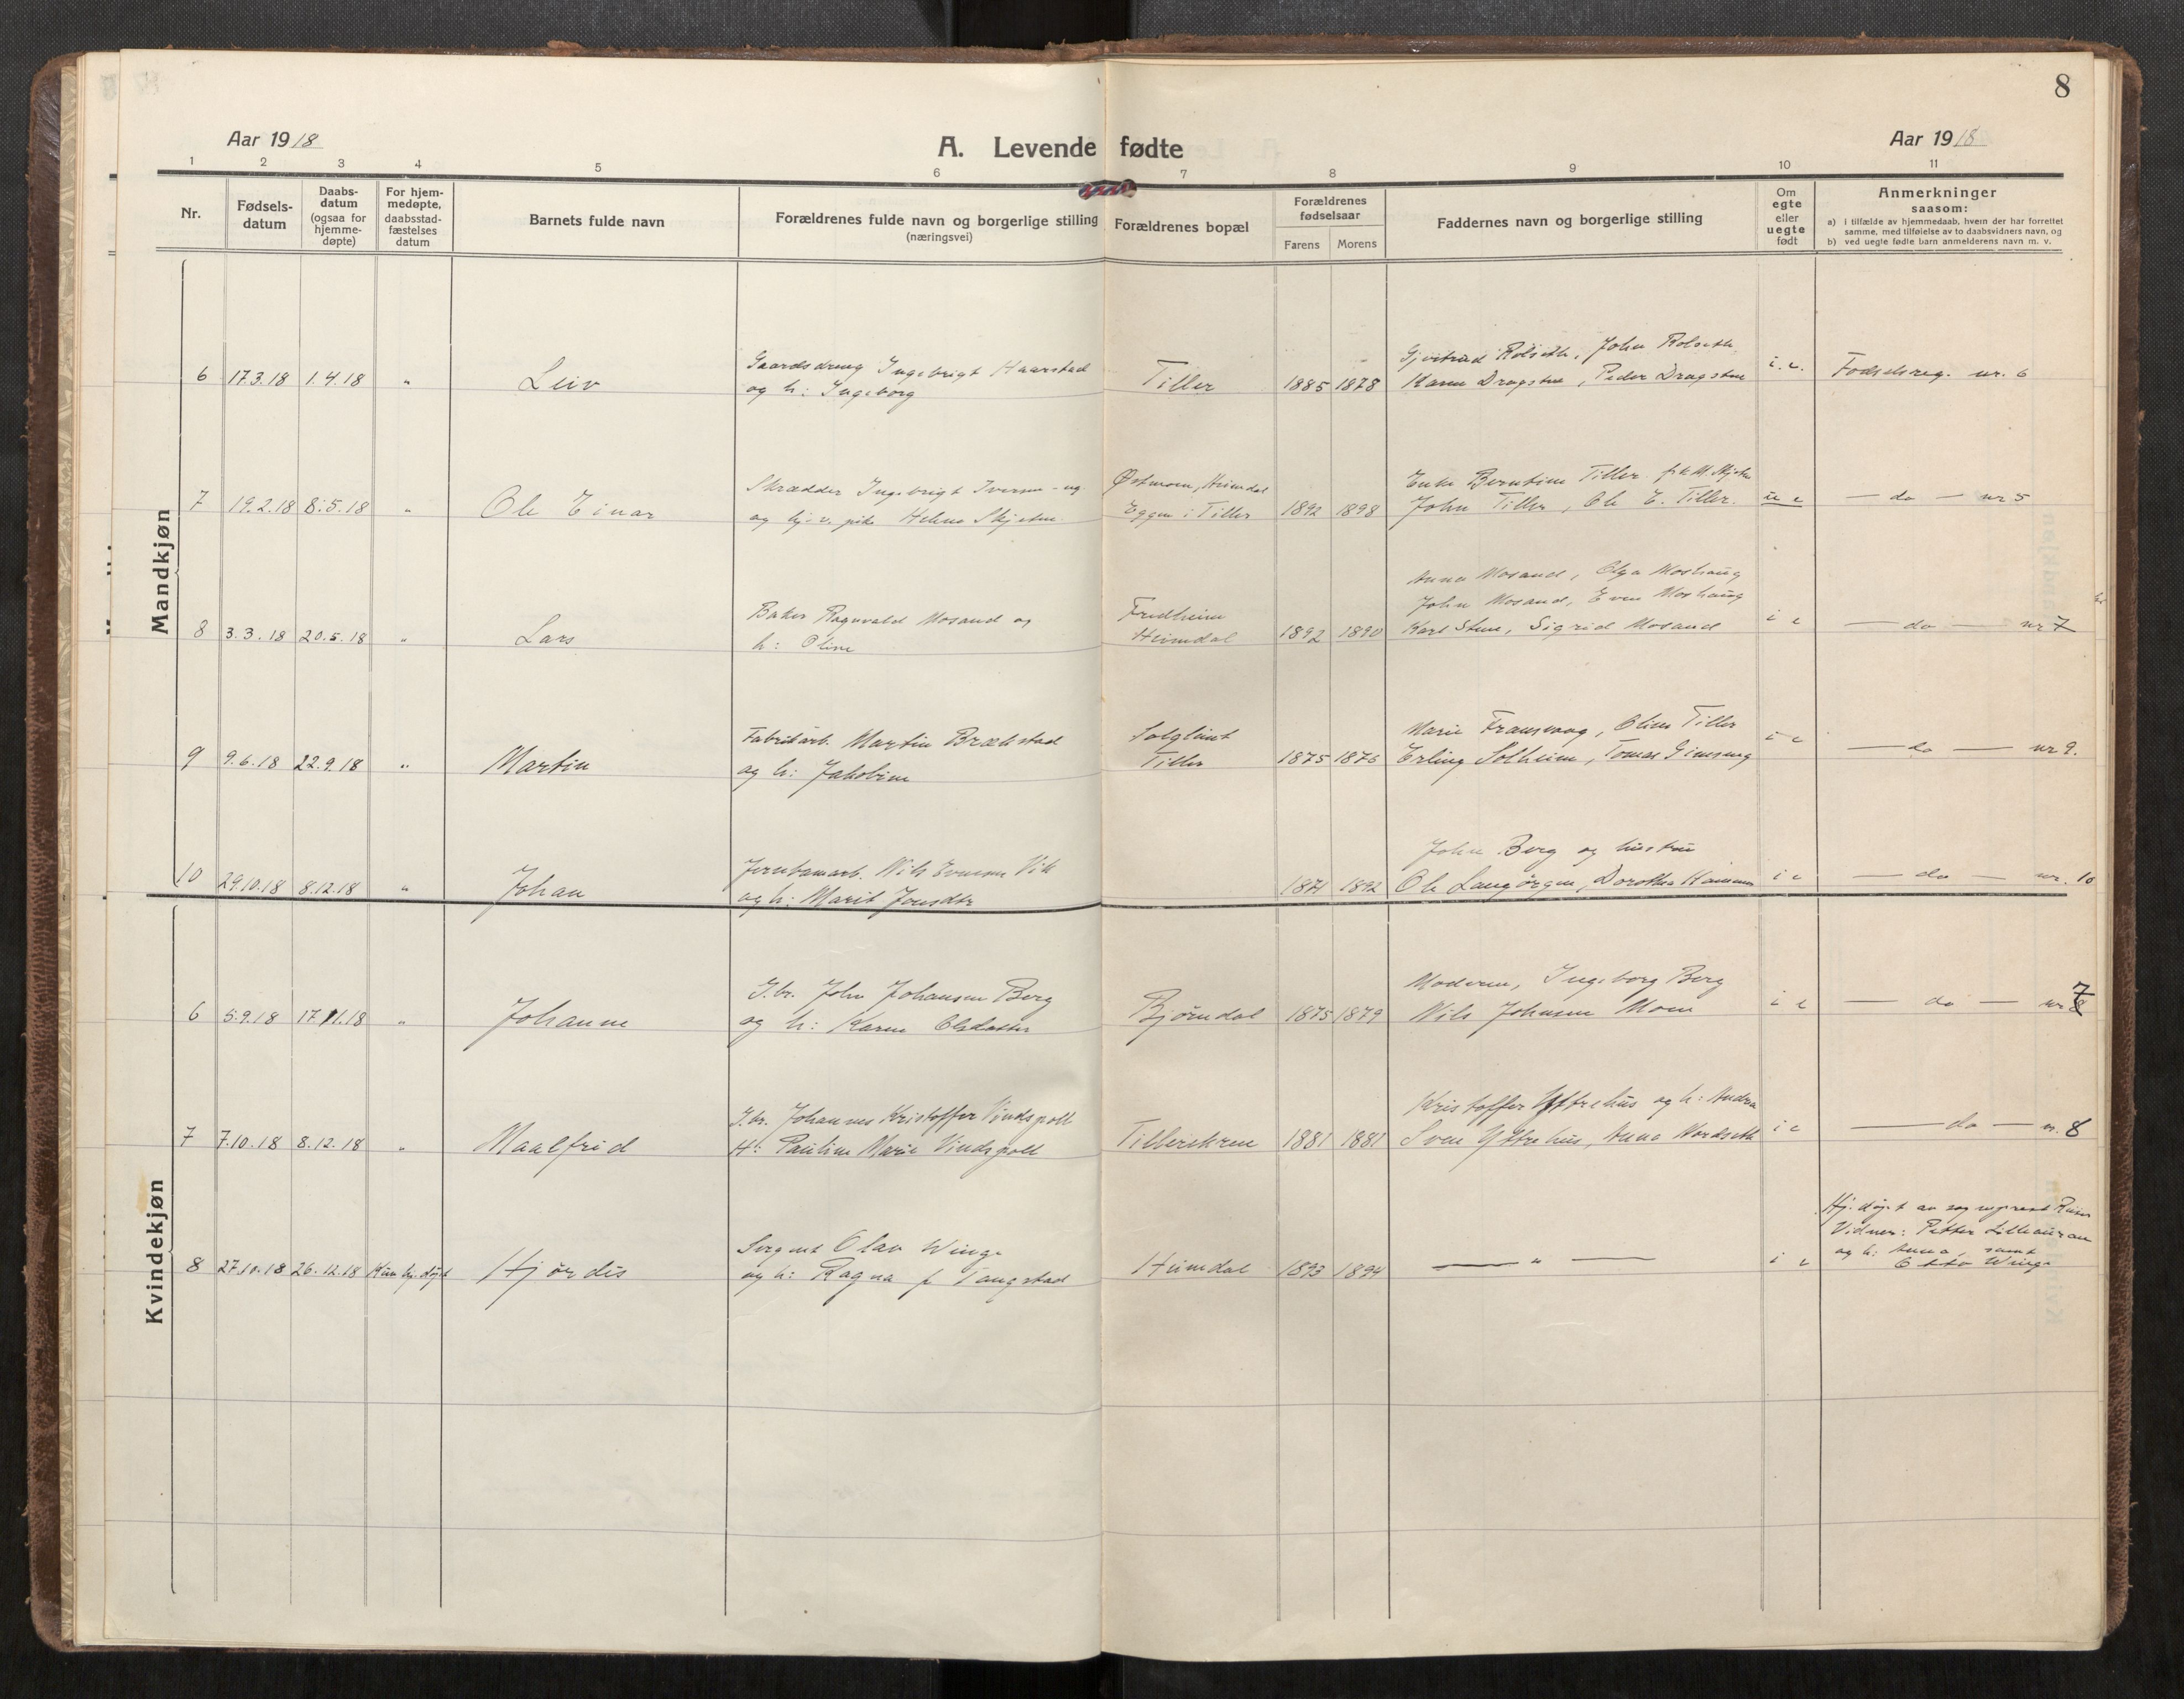 8
Aar 1918
A. Levende fødte
Aar 1918
1 2 3 4 5 6 7 8 9 10 11
Nr.
Fødsels-
datum
Daabs-
datum
(ogsaa for
hjemme-
døpte)
For hjem-
medøpte,
daabsstad-
fæstelses
datum
Barnets fulde navn
Forældrenes fulde navn og borgerlige stilling
(næringsvei)
Forældrenes bopæl
Forældrenes
fødselsaar
Farens Morens
Faddernes navn og borgerlige stilling
Om
egte
eller
uegte
født
Anmerkninger
saasom:
a) i tilfælde av hjemmedaab, hvem der har forrettet
samme, med tilføielse av to daabsvidners navn, og
b) ved uegte fødte barn anmelderens navn m. v.
Mandkjøn
6 17.3.18 1.4.18 " Leiv
Gaardsdreng Ingebrigt Haarstad
og h: Ingeborg
Tiller
1885 1878
Rolseth, John Rolseth
Karen Dragsten, Peder Dragsten
i.e.
Fødselsreg. nr. 6
7 19.2.18 8.5.18 " Ole Einar
Skrædder Ingebrigt Iversen - ug.
og pike Helene Skjetne
Østmoen, Heimdal
Eggen i Tiller
1892 1898
Enke Berntine Tiller
John Tiller, Ole E. Tiller.
u e
— do — nr 5
8 3.3.18 20.5.18 " Lars
Baker Ragnvald Mosand og
h: Oline
Fredheim
Heimdal
1892 1890
Anna Mosand, Olga Moshaug
John Mosand, Even Moshaug
Karl Stene, Sigrid Mosand
i e
— do — nr 7
9 9.6.18 22.9.18 " Martin
Fabrikarb. Martin Brækstad
og h: Jakobine
Solglimt
Tiller
1875 1876
Marie, Oline Tiller
Erling Solheim, Tomas
i e
— do — nr 9.
10 29.10.18 8.12.18 " Johan
Jernbanearb. Nils Evensen Vik
og h: Marit Jonsdtr
1871 1892
John Berg og hustru
Ole Langørgen, Dorothea Hansen
i e
— do — nr. 10
Kvindekjøn
6 5.9.18 17.11.18 " Johanne
G.br. John Johansen Berg
og h: Karen Olsdatter
Bjørndal
1875 1879
Moderen, Ingeborg Berg
Nils Johnsen Moen
i e
— do — nr 8 7
7 7.10.18 8.12.18 " Maalfrid
G.br. Johannes Kristoffer Vindspoll
H: Pauline Marie Vindspoll
Tillerskren
1881 1881
Kristoffer Yttrehus og h: Andrea
Sven Yttrehus, Anna Nordseth
i e
— do — n. 8
8 27.10.18 26.12.18 Kun hj. døpt Hjørdis
Sergent Olav Winge
og h: Ragna f Tangstad
Heimdal
1893 1894
— " —
i e
Hj. døpt av sogneprest
Vidner: Petter
og h: Anna, samt
Otto Winge